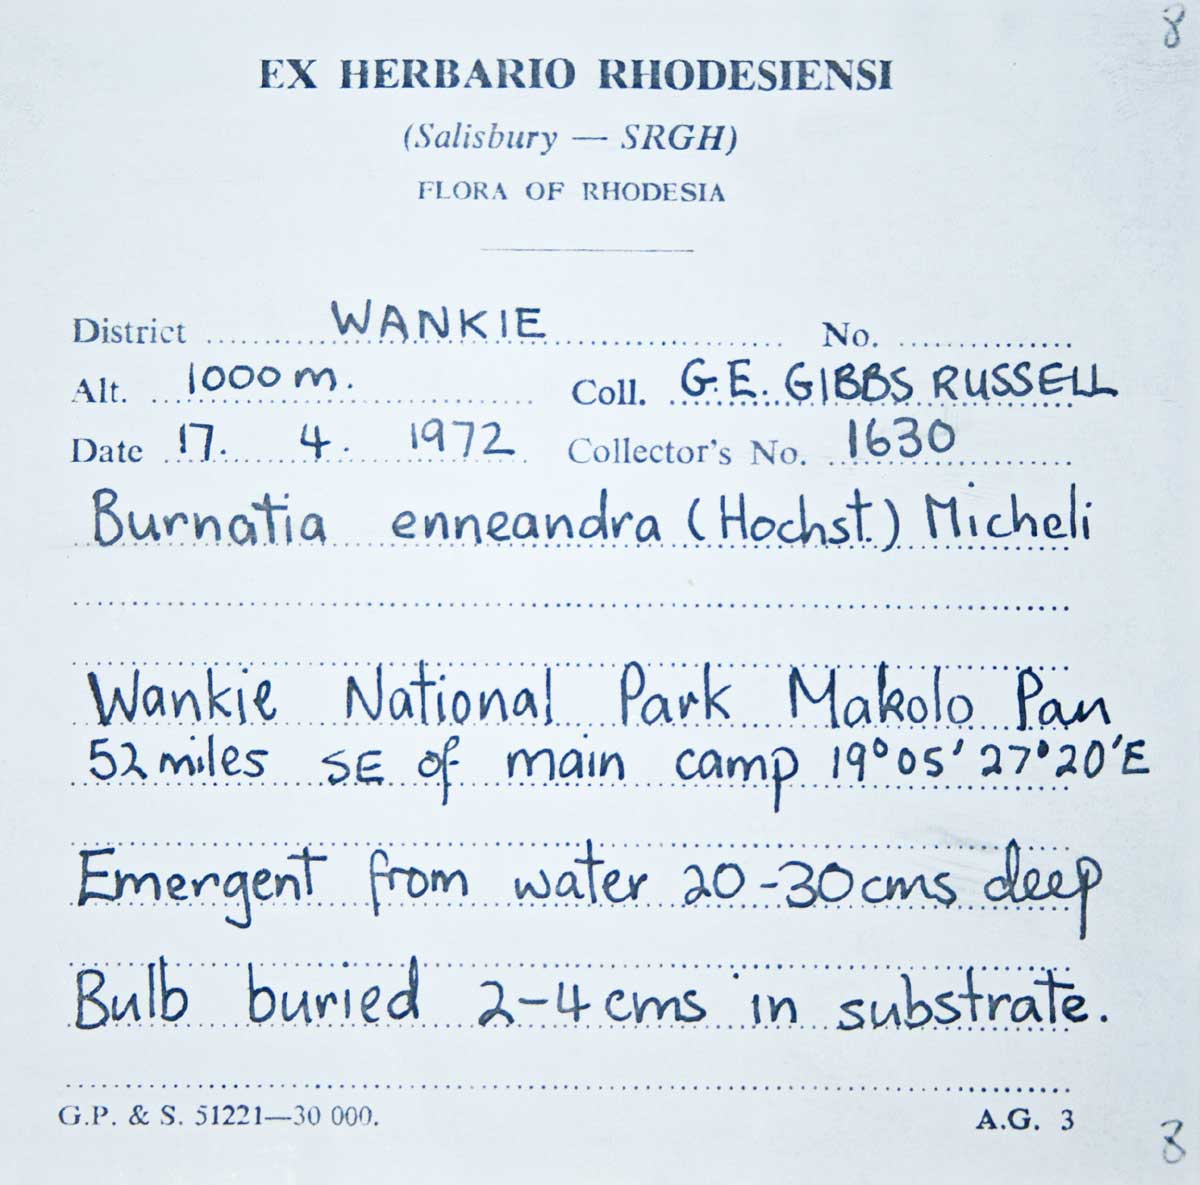 8
EX HERBARIO RHODESIENSI
(Salisbury — SRGH)
FLORA OF RHODESIA
District WANKIE No.
Alt. 1000 m. Coll. G.E. GIBBS RUSSELL
Date 17. 4. 1972 Collector's No. 1630
Burnatia enneandra (Hochst.) Micheli
Wankie National Park Makolo Pan
52 miles SE of main camp 19°05' 27°20'E
Emergent from water 20-30 cms deep
Bulb buried 2-4 cms in substrate.
G.P. & S. 51221—30 000. A.G. 3
8